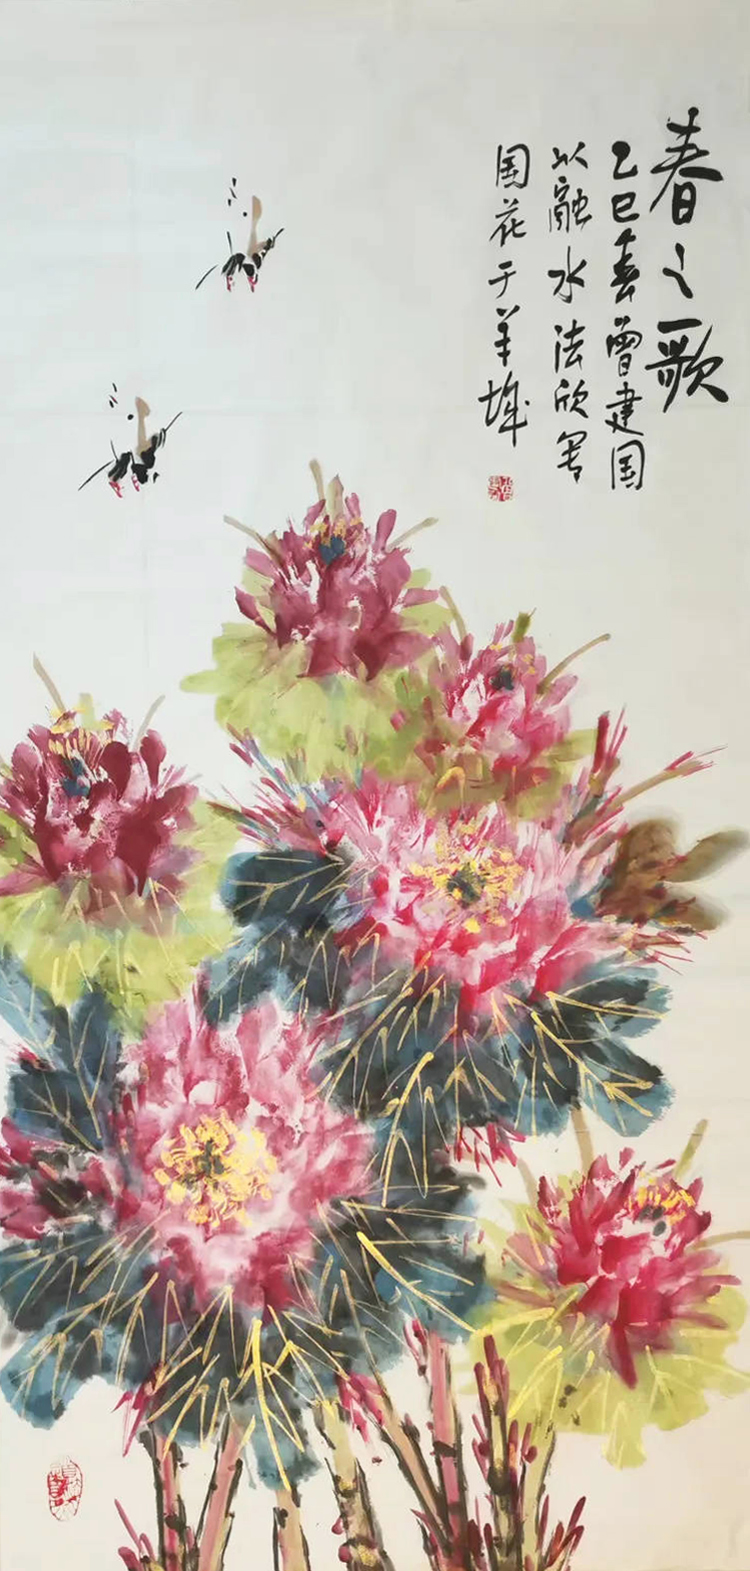 春之歌
乙巳春曾建国
以融水法欣写
国花于羊城